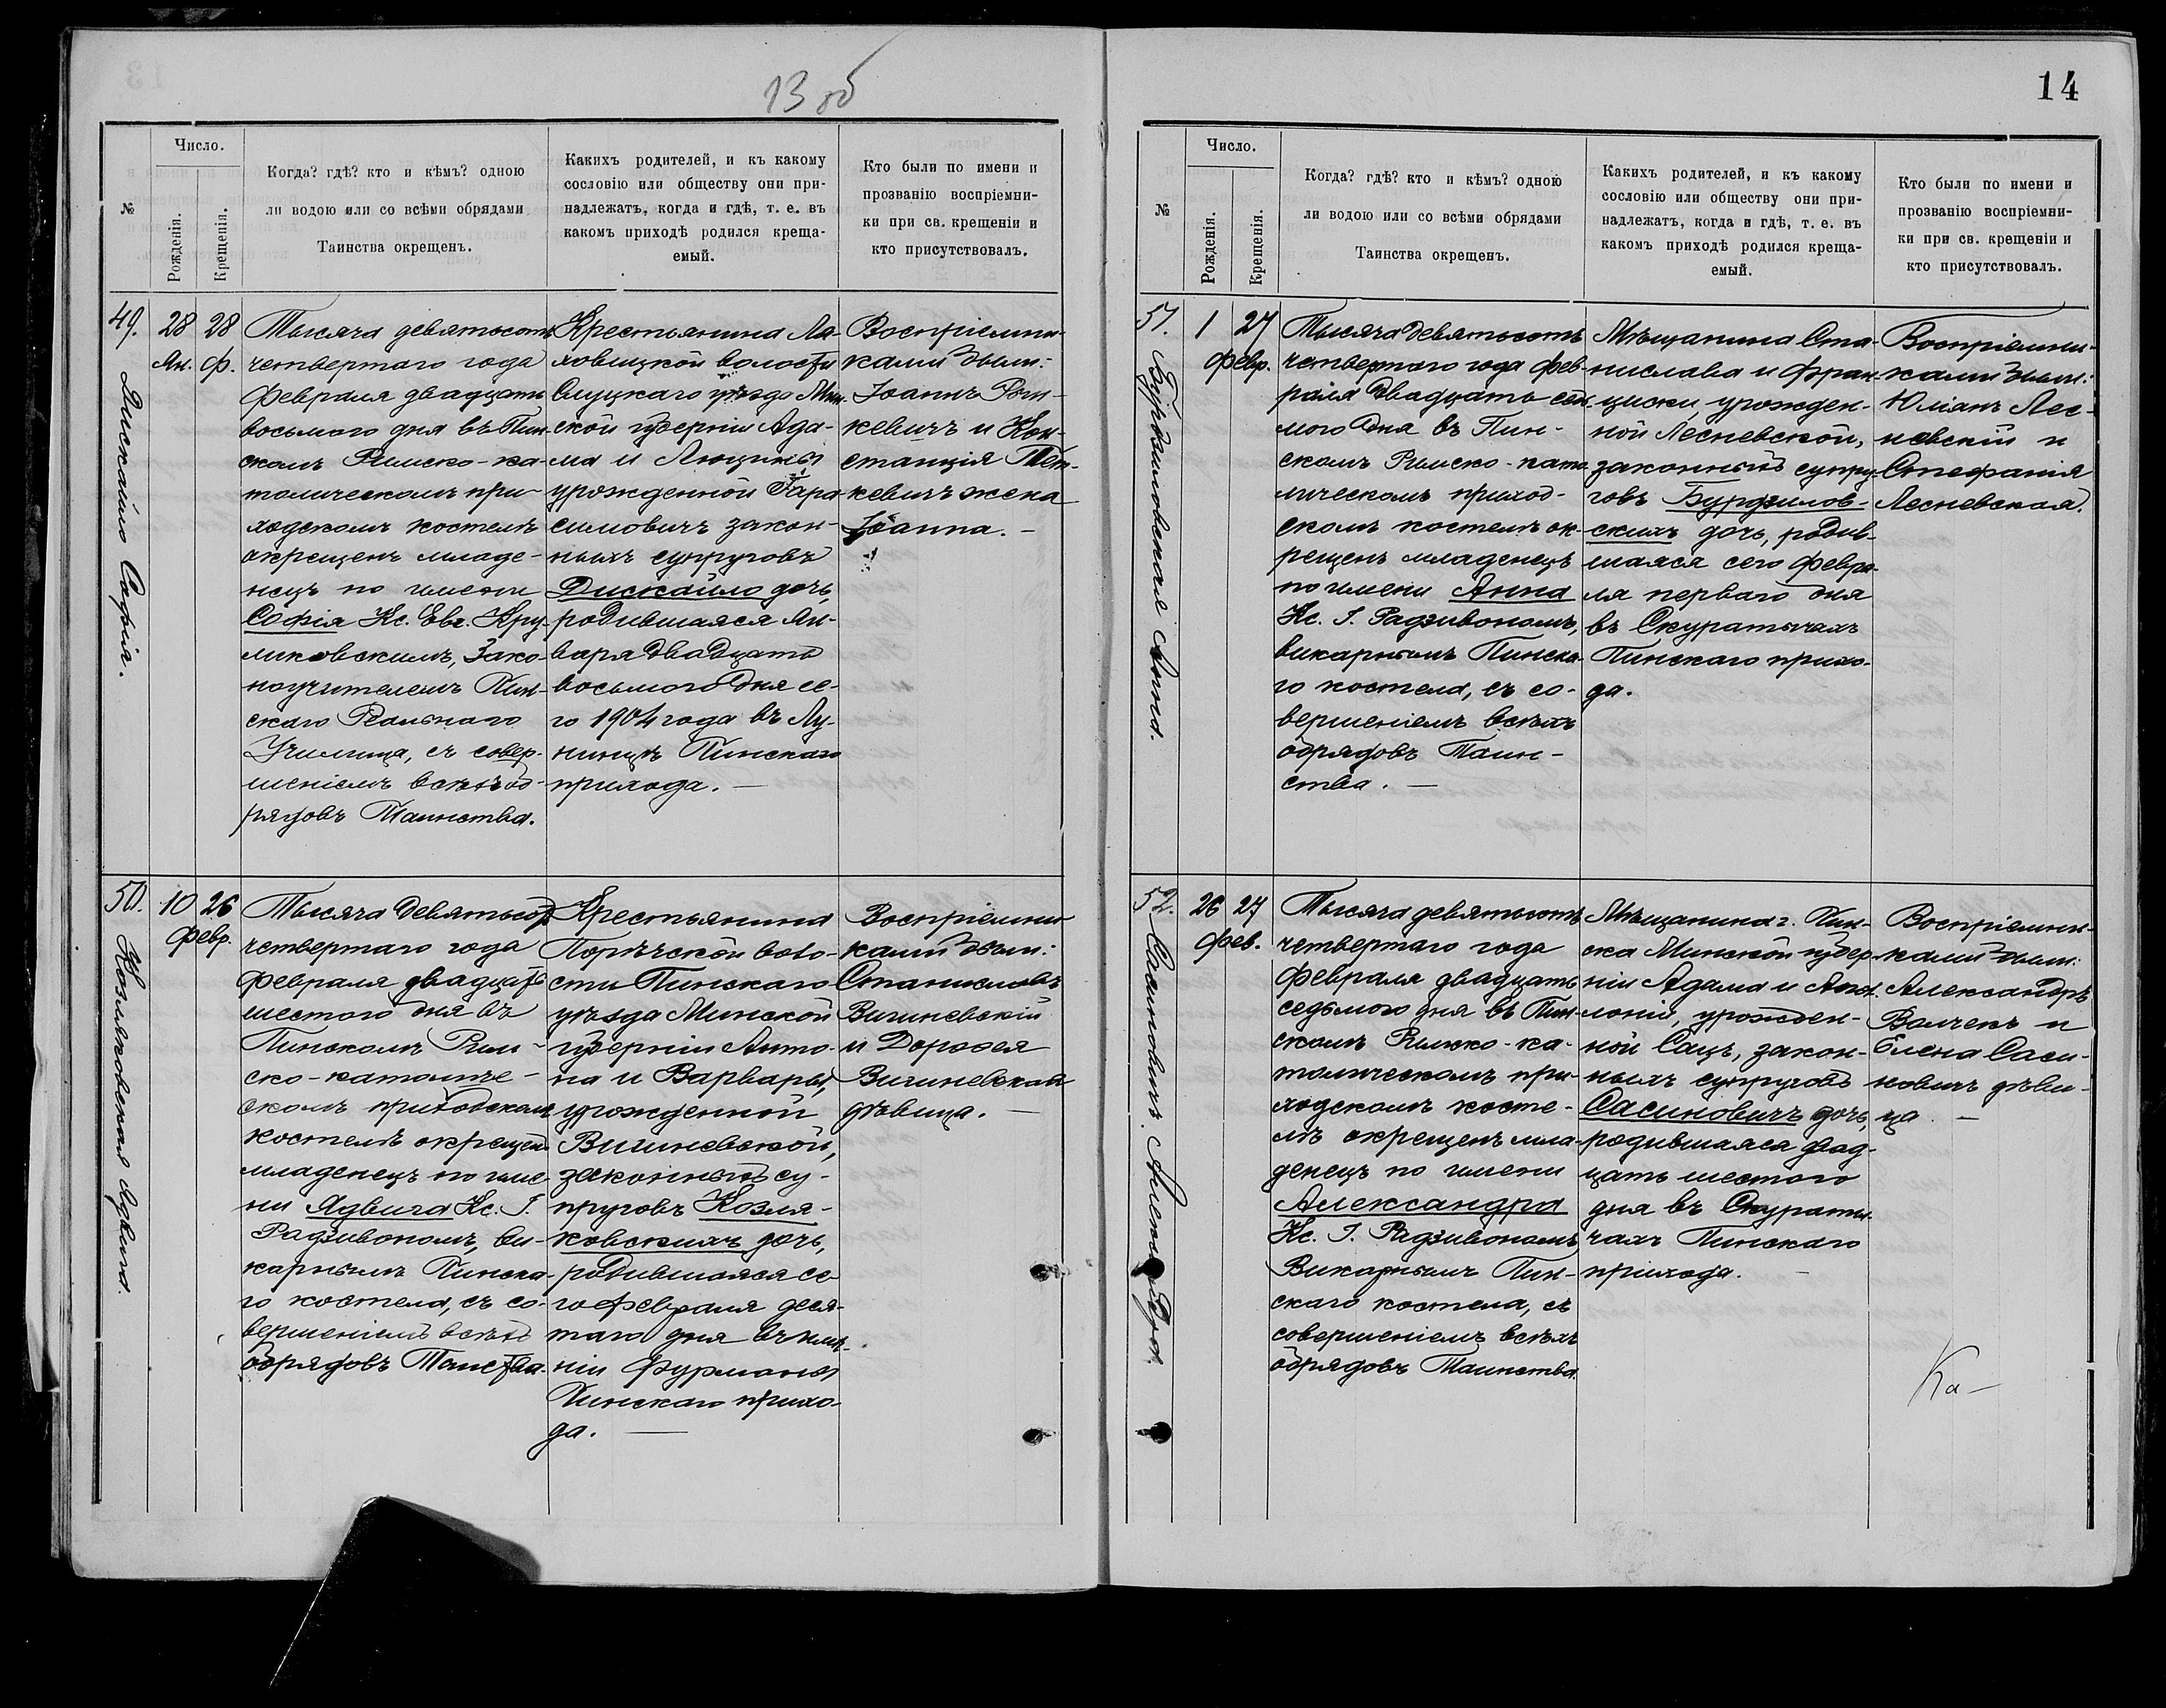 13 об
Число.
№
Рожденія.
Крещенія.
Когда? гдѣ? кто и кѣмъ? одною
ли водою или со всѣми обрядами
Таинства окрещенъ.
Какихъ родителей, и къ какому
сословію или обществу они при-
надлежатъ, когда и гдѣ, т. е. въ
какомъ приходѣ родился креща-
емый.
Кто были по имени и
прозванію воспріемни-
ки при св. крещеніи и
кто присутствовалъ.
49.
Дискайло Софія.
28
Ян.
28
Ф.
Тысяча девятьсотъ
четвертаго года
Февраля двадцать
восьмого дня въ Пин-
скомъ Римско-ка-
толическомъ при-
ходскомъ костелѣ
окрещенъ младе-
нецъ по имени
Софія Кс. Евг. Кру-
ликовскимъ, Зако-
ноучителемъ Пин-
скаго Реальнаго
Училища, съ совер-
шеніемъ всѣхъ об-
рядовъ Таинства.
Крестьянина Ля-
ховицкой волости
Слуцкаго уѣзда Мин-
ской губерніи Ада-
ма и Люцины
урожденной Гара
симовичъ закон-
ныхъ супруговъ
Дискайло дочь,
родившаяся Ян-
варя двадцать
восьмого дня се-
го 1904 года въ Лу-
нинцѣ Пинскаго
прихода. —
Воспріемни-
ками были:
Іоаннъ
кевичъ и Кон-
станція
кевичъ жена
Іоанна. —
50.
Козляковская Ядвига.
10
26
Февр.
Тысяча девятьсот
четвертаго года
Февраля двадцать
шестого дня въ
Пинскомъ Рим-
ско-католиче-
скомъ приходскомъ
костелѣ окрещенъ
младенецъ по име-
ни Ядвига Кс. І.
Радзивономъ, ви-
карнымъ Пинска-
го костела, съ со-
вершеніемъ всѣхъ
обрядовъ Таинства.
Крестьянина
Порѣчской воло-
сти Пинскаго
уѣзда Минской
губерніи Анто-
на и Варвары,
урожденной
Вигиневской,
законныхъ су-
пруговъ Козля-
ковскихъ дочь,
родившаяся се-
го февраля деся-
таго дня въ имѣ-
ніи Фурманы
Пинскаго прихо-
да. —
Воспріемни-
ками были:
Станиславъ
Вигиневскій
и Доровея
Вигиневская
дѣвица. —
14
Число.
№
Рожденія.
Крещенія.
Когда? гдѣ? кто и кѣмъ? одною
ли водою или со всѣми обрядами
Таинства окрещенъ.
Какихъ родителей, и къ какому
сословію или обществу они при-
надлежатъ, когда и гдѣ, т. е. въ
какомъ приходѣ родился креща-
емый.
Кто были по имени и
прозванію воспріемни-
ки при св. крещеніи и
кто присутствовалъ.
51.
Бурдзиловская Анна.
1
27
Февр.
Тысяча девятьсотъ
четвертаго года фев-
раля двадцать седь-
мого дня въ Пин-
скомъ Римско-като
лическомъ приход-
скомъ костелѣ ок-
рещенъ младенецъ
по имени Анна
Кс. І. Радзивономъ,
викарнымъ Пинска-
го костела, съ со-
вершеніемъ всѣхъ
обрядовъ Таин-
ства. —
Мѣщанина Ста-
нислава и Фран-
циски, урожден-
ной Лесневской,
законныхъ супру-
говъ Бурдзилов-
скихъ дочь, родив-
шаяся сего Февра-
ля перваго дня
въ Скуратычахъ
Пинскаго прихо-
да.
Воспріемни-
ками были:
Юліанъ Лес-
невскій и
Стефанія
Лесневская.
52.
Сасиновичъ Александра.
26
27
Фев.
Тысяча девятьсотъ
четвертаго года
Февраля двадцать
седьмого дня въ Пин-
скомъ Римско-ка-
толическомъ при-
ходскомъ косте-
лѣ окрещенъ мла-
денецъ по имени
Александра
Кс. І. Радзивономъ
Викарнымъ Пин-
скаго костела, съ
совершеніемъ всѣхъ
обрядовъ Таинства.
Мѣщанина г. Пин-
ска Минской губер-
ніи Адама и Апол-
лоніи, урожден-
ной Сацъ, закон-
ныхъ супруговъ
Сасиновичъ дочь,
родившаяся двад-
цать шестого
дня въ Скураты-
чахъ Пинскаго
прихода. —
Воспріемни-
ками были:
Александръ
Волчекъ и
Елена Саси-
новичъ дѣви-
ца. —
Ка—